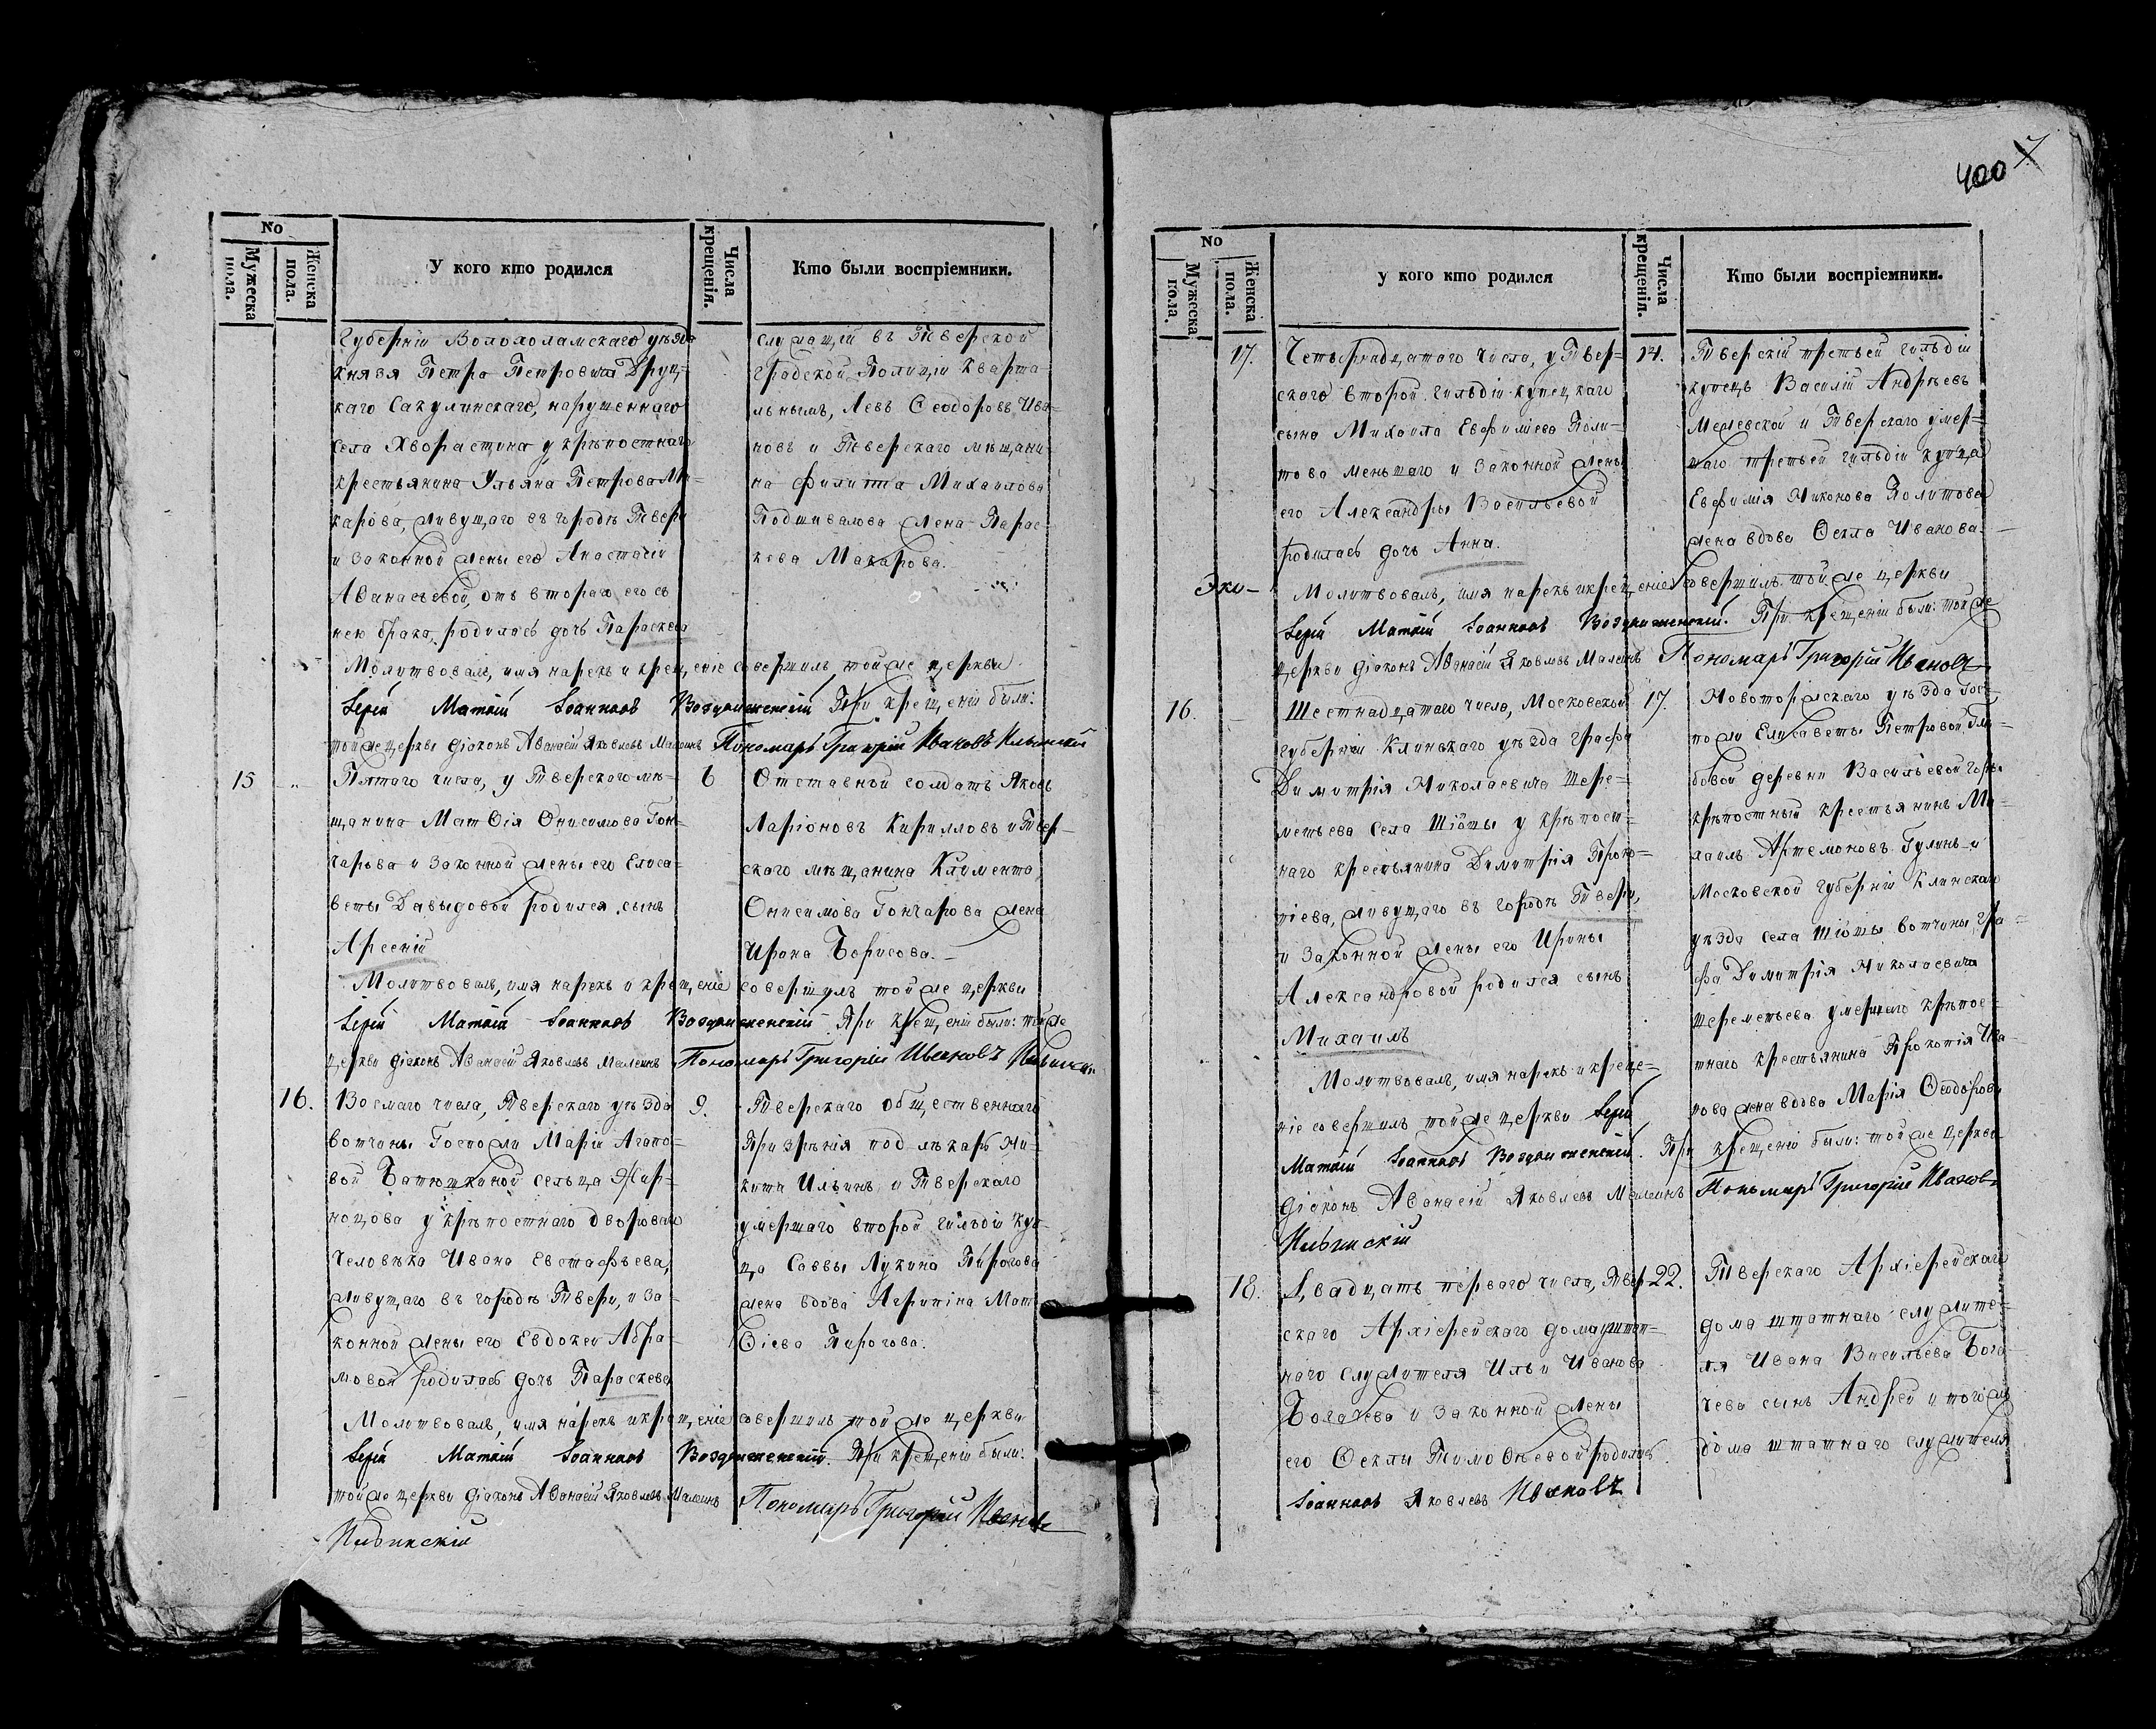 400 7
No
Мужеска пола.
Женска пола.
У кого кто родился
Числа крещенія.
Кто были воспріемники.
Губерніи Волоколамскаго уѣзда
Князя Петра Петровича Друц-
каго Сакулинскаго, нарушеннаго
села Хворастина у крѣпостнаго
крестьянина Ульяна Петрова Ма-
карова, живущаго въ городѣ Твери
и законной жены его Анастасіи
Аѳанасьевой, отъ втораго его съ
нею брака, родилась дочь Параскева
служащій въ Тверской
Градской Полиціи Кварта-
льнымъ, Левъ Ѳеодоровъ Ива-
новъ и Тверскаго мѣщани-
на Филиппа Михаилова
Подшивалова жена Парас-
кева Макарова.
Молитвовалъ, имя нарекъ и крещеніе совершилъ той же церкви
Іерей Матѳій Іоанновъ Воздвиженскій При крещеніи были:
той же церкви діаконъ Аѳанасій Яковлевъ Малеинъ Пономарь Григорій Ивановъ Ильинскій
15 " Пятаго числа, у Тверскаго мѣ-
щанина Матѳія Онисимова Гон-
чарова и законной жены его Елиса-
веты Давыдовой родился сынъ
Арсеній
6 Отставной солдатъ Яковъ
Ларіоновъ Кирилловъ и Твер-
скаго мѣщанина Климента
Онисимова Гончарова жена
Ирина Борисова.
Молитвовалъ, имя нарекъ и крещеніе совершилъ той же церкви
Іерей Матѳій Іоанновъ Воздвиженскій При крещеніи были: той же
церкви діаконъ Аѳанасій Яковлевъ Малеинъ Пономарь Григорій Ивановъ Ильинскій
16. Восмаго числа, Тверскаго уѣзда
вотчины Госпожи Маріи Агапо-
вой Батюшкиной сельца Жир-
ноцова у крѣпостнаго двороваго
человѣка Ивана Евстафьева,
живущаго въ городѣ Твери, и за-
конной жены его Евдокеи Абра-
мовой родилась дочь Параскева
9. Тверскаго общественнаго
Призрѣнія подлѣкарь Ни-
кита Ильинъ и Тверскаго
умершаго второй гильдіи куп-
ца Саввы Лукина Пирогова
жена вдова Агрипіна Мат-
ѳіева Пирогова.
Молитвовалъ, имя нарекъ и крещеніе совершилъ той же церкви
Іерей Матѳій Іоанновъ Воздвиженскій. При крещеніи были:
той же церкви діаконъ Аѳанасій Яковлевъ Малеинъ Пономарь Григорій Ивановъ
Ильинскій
No
Мужеска пола.
Женска пола.
у кого кто родился
Числа крещенія.
Кто были воспріемники.
17. Четырнадцатаго числа, у Твер-
скаго второй гильдіи купецкаго
сына Михаила Евфиміева Поли-
това меньшаго и законной жены
его Александры Васильевой
родилась дочь Анна.
14. Тверскій третьей гильдіи
купецъ Василій Андрѣевъ
и Тверскаго умер-
шаго третьей гильдіи купца
Евфимія Никонова Политова
жена вдова Ѳекла Иванова.
Молитвовалъ, имя нарекъ и крещеніе совершилъ той же церкви
Іерей Матѳій Іоанновъ Воздвиженскій. При крещеніи были: той же
церкви діаконъ Аѳанасій Яковлевъ Малеинъ Пономарь Григорій Ивановъ
16. Шестнадцатаго числа, Московской
губерніи Клинскаго уѣзда Графа
Димитрія Николаевича Шере-
метьева села Шіоты у крѣпост-
наго крестьянина Димитрія Проко-
піева, живущаго въ городѣ Твери,
и законной жены его Ирины
Александровой родился сынъ
Михаилъ
17. Новоторжскаго уѣзда Гос-
пожи Елисаветы Петровой Глѣ-
бовой деревни Васильевой горы
крѣпостный крестьянинъ Ми-
хаилъ Артемоновъ Гулинъ и
Московской губерніи Клинскаго
уѣзда села Шіоты вотчины Гра-
фа Димитрія Николаевича
Шереметьева умершаго крѣпос-
тнаго крестьянина Прокопія Ива-
нова жена вдова Марія Ѳеодорова
Молитвовалъ, имя нарекъ и креще-
ніе совершилъ той же церкви Іерей
Матѳій Іоанновъ Воздвиженскій. При крещеніи были: той же церкви
діаконъ Аѳанасій Яковлевъ Малеинъ Пономарь Григорій Ивановъ
Ильинскій
18. Двадцать перваго числа, Твер-
скаго Архіерейскаго дома штат-
наго служителя Ильи Иванова
Богачева и законной жены
его Ѳеклы Тимоѳеевой родилась
22. Тверскаго Архіерейскаго
дома штатнаго служите-
ля Ивана Васильева Бога-
чева сынъ Андрей и того же
дома штатнаго служителя
Іоанновъ Яковлевъ Ивановъ